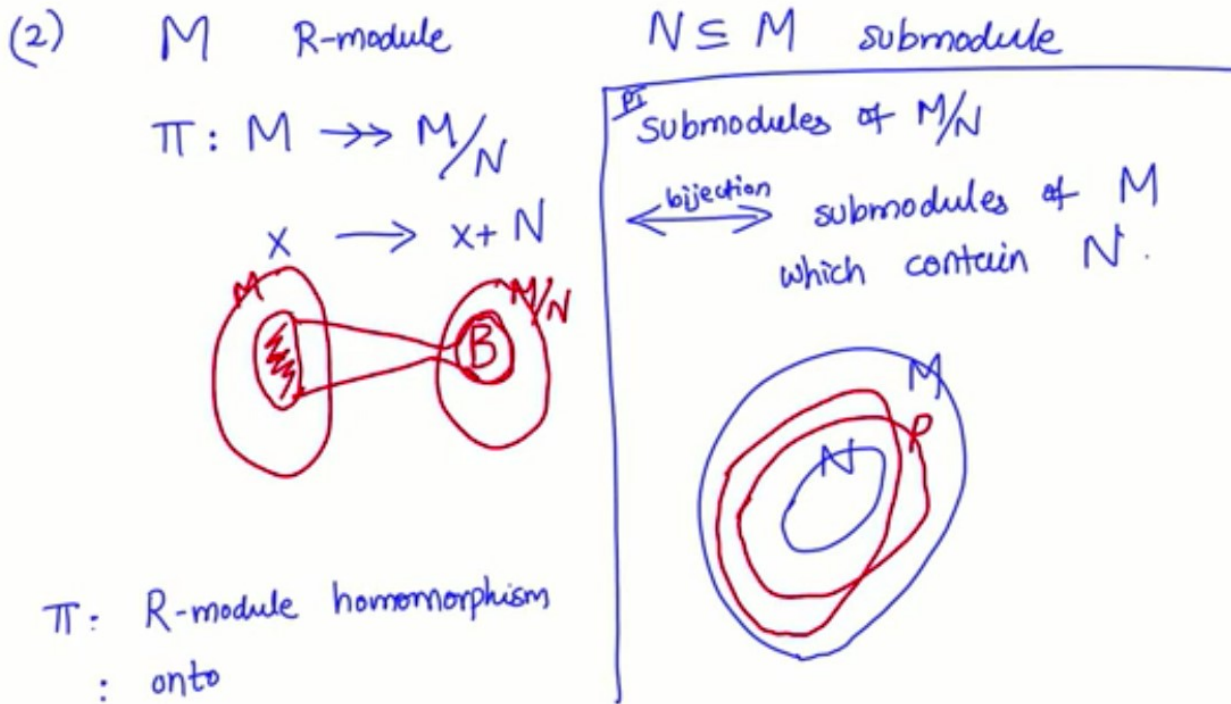 (2) M R-module N ⊆ M submodule
π: M ↠ M/N
x → x+N
M M/N
B
π: R-module homomorphism
: onto
submodules of M/N
bijection
⟷ submodules of M
which contain N.
M
P
N